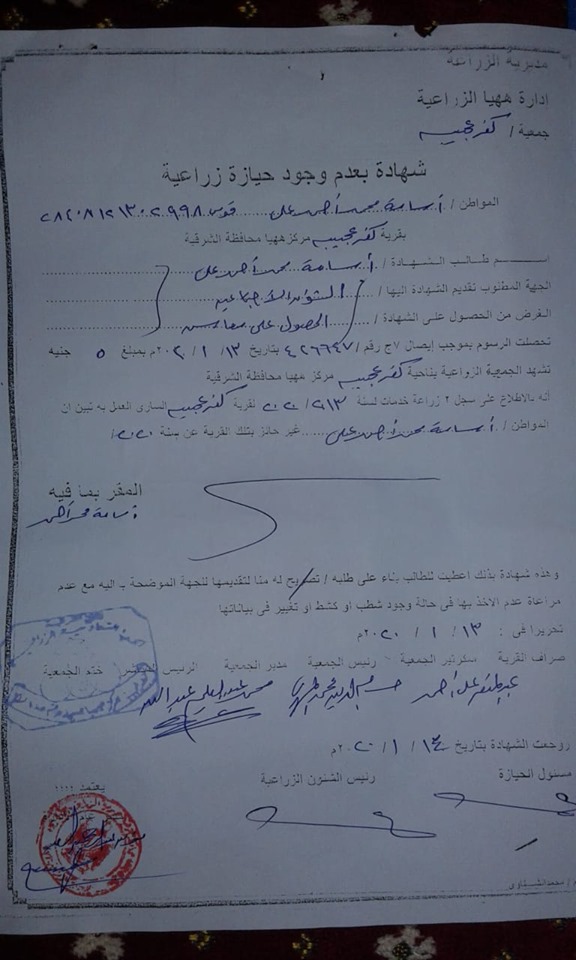 مديرية الزراعة
ادارة ههيا الزراعية
جمعية / كفر عجيبه
شهادة بعدم وجود حيازة زراعية
المواطن / أسامة محمد أحمد على
بقرية كفر عجيبه مركز ههيا محافظة الشرقية
اسم طالب الشهادة / أسامة محمد أحمد على
الجهة المطلوب تقديم الشهادة اليها / الشئون الاجتماعيه
الغرض من الحصول على الشهادة / الحصول على معاش
تحصلت الرسوم بموجب إيصال ٧ج رقم / ٤٢٦٦٤٧ بتاريخ ١٣ / ١ / ٢٠٢٠م بمبلغ ٥ جنيه
تشهد الجمعية الزراعية بناحية كفر عجيبه مركز ههيا محافظة الشرقية
أنه بالاطلاع على سجل ٢ زراعة خدمات لسنة لقرية كفر عجيبه السارى العمل به تبين ان
المواطن / أسامة محمد أحمد على غير حائز بتلك القرية عن سنة ٢٠٢٠/
المقر بما فيه
أسامة محمد أحمد
وهذه شهادة بذلك اعطيت للطالب بناء على طلبه / تصريح له منا لتقديمها للجهة الموضحة ب اليه مع عدم
مراعاة عدم الاخذ بها فى حالة وجود شطب او كشط او تغيير فى بياناتها
تحريرا فى : ١٣ / ١ / ٢٠٢٠م
صراف القرية سكرتير الجمعية رئيس الجمعية مدير الجمعية الرئيس ختم الجمعية
روجعت الشهادة بتاريخ ١٤ / ١ / ٢٠٢٠م
مسئول الحيازة رئيس الشئون الزراعية يعتمد